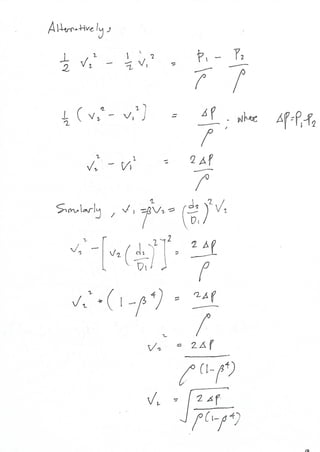 Alternatively,
½ V₂² - ½ V₁² = P₁/ρ - P₂/ρ
½ (V₂² - V₁²) = ΔP/ρ ; where ΔP = P₁-P₂
V₂² - V₁² = 2ΔP/ρ
Similarly, V₁ = β²V₂ = (d₂/D₁)² V₂
V₂² - [V₂ (d₂/D₁)²]² = 2ΔP/ρ
V₂² * (1-β⁴) = 2ΔP/ρ
V₂² = 2ΔP/ρ(1-β⁴)
V₂ = √(2ΔP/ρ(1-β⁴))